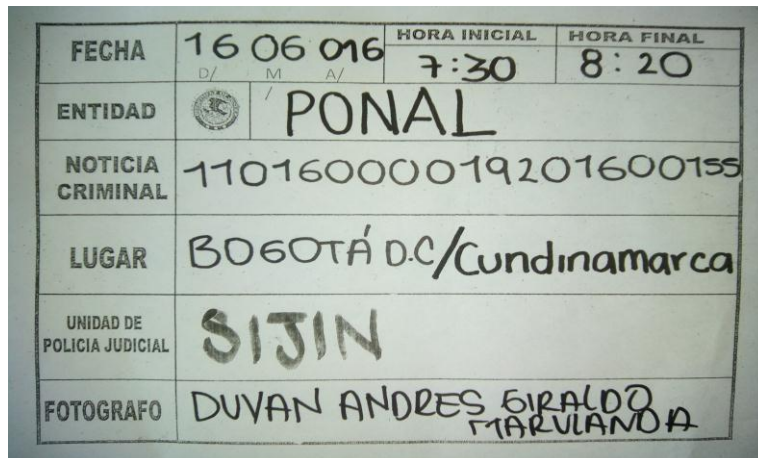 FECHA 16 06 016 HORA INICIAL 7:30 HORA FINAL 8:20
D/ M/ A/
ENTIDAD PONAL
NOTICIA CRIMINAL 110160000192201600155
LUGAR BOGOTÁ D.C/Cundinamarca
UNIDAD DE POLICIA JUDICIAL SIJIN
FOTOGRAFO DUVAN ANDRES GIRALDO